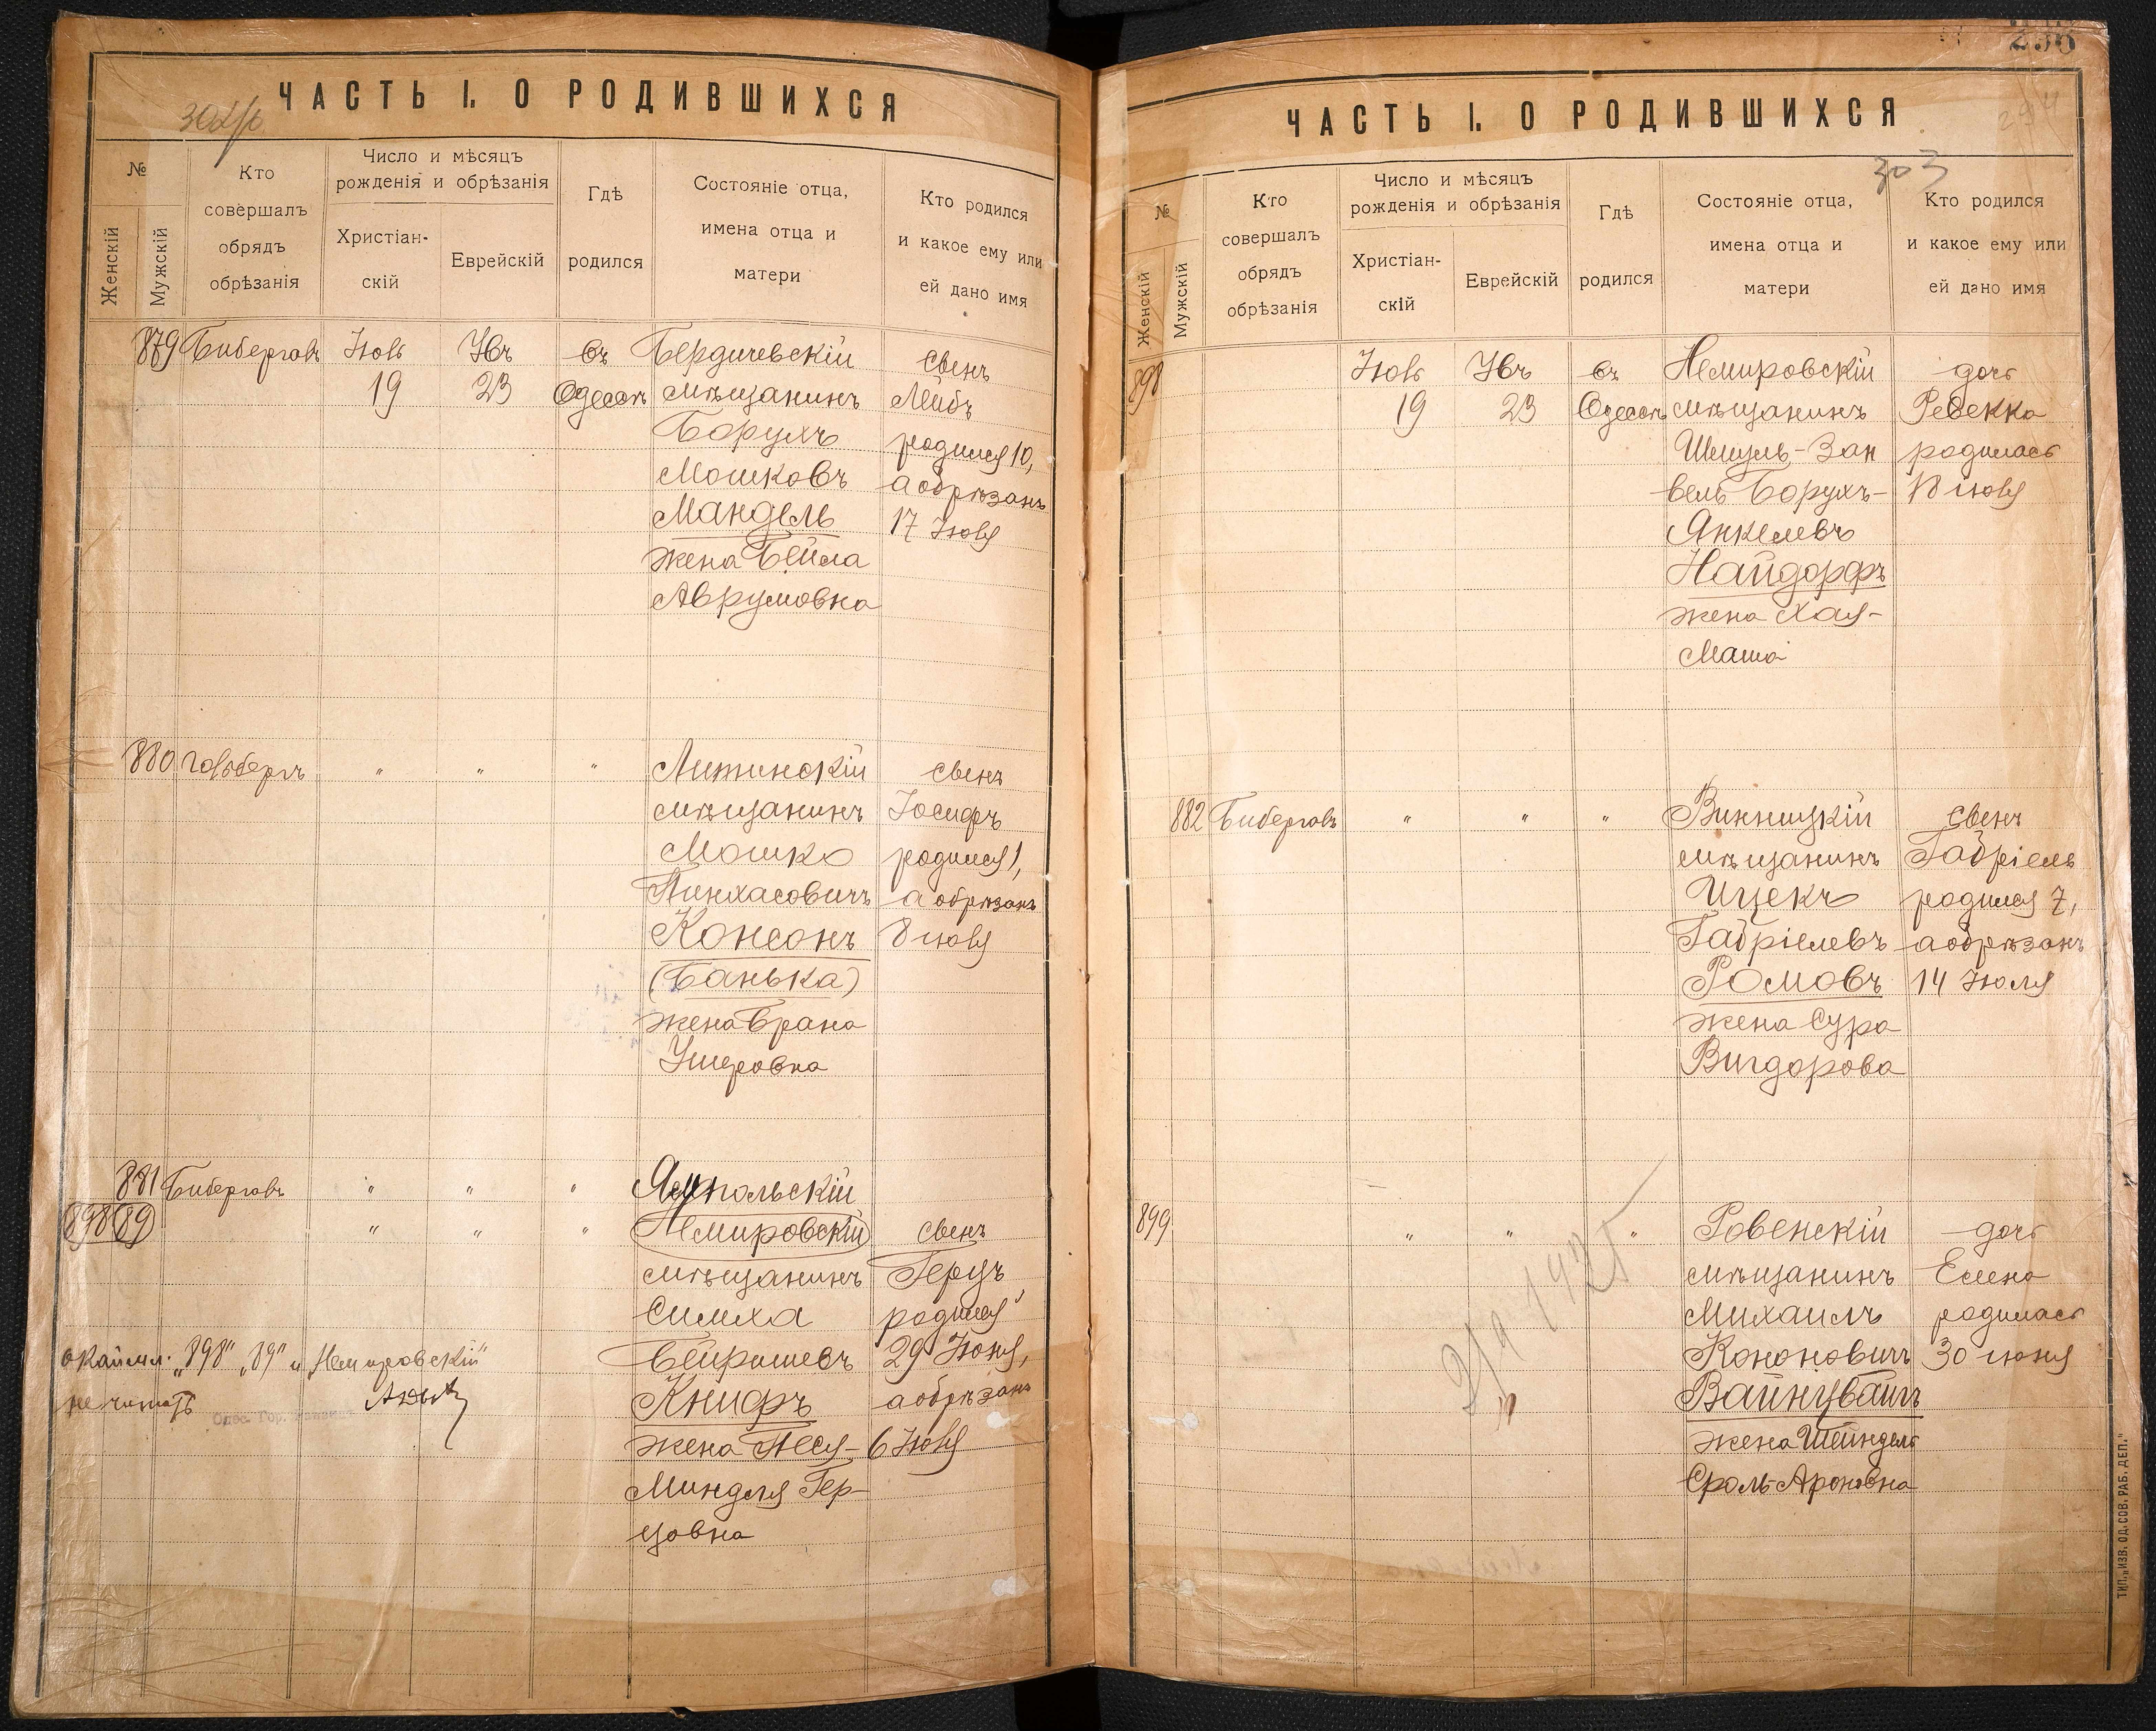 ЧАСТЬ I. О РОДИВШИХСЯ
№
Женскій
Мужскій
Кто
совершалъ
обрядъ
обрѣзанія
Число и мѣсяцъ
рожденія и обрѣзанія
Христіан-
скій
Еврейскій
Гдѣ
родился
Состояніе отца,
имена отца и
матери
Кто родился
и какое ему или
ей дано имя
879 Бибергалъ Іюль 19 23 въ Одессѣ
Бердичевскій
мѣщанинъ
Борухъ
Мошковъ
Мандель
жена Бейла
Аврумовна
сынъ
Лейбъ
родился 10,
а обрѣзанъ
17 Іюля
880 Гольбергъ " " "
Литинскій
мѣщанинъ
Мошко
Пинхасовичъ
Консонъ
(Банька)
жена Брана
Ушеровна
сынъ
Іосифъ
родился 1,
а обрѣзанъ
8 іюля
881 Бибергалъ " " "
Ямпольскій
898 89 " " "
Немировскій
мѣщанинъ
Симха
Бейришевъ
Книфъ
жена Песя-
Миндля Гер-
цовна
сынъ
Герцъ
родился
29 Іюня,
а обрѣзанъ
6 Іюля
окаймл. „898" „89" и „Немировскій"
не читать
ЧАСТЬ I. О РОДИВШИХСЯ
303
№
Женскій
Мужскій
Кто
совершалъ
обрядъ
обрѣзанія
Число и мѣсяцъ
рожденія и обрѣзанія
Христіан-
скій
Еврейскій
Гдѣ
родился
Состояніе отца,
имена отца и
матери
Кто родился
и какое ему или
ей дано имя
898 Іюль 19 23 въ Одессѣ
Немировскій
мѣщанинъ
Шмуль-Зан
вель Борухъ-
Янкелевъ
Найдорфъ
жена Хая-
Маша
дочь
Ревекка
родилась
18 іюля
882 Бибергалъ " " "
Винницкій
мѣщанинъ
Ицекъ
Габріелевъ
Ромовъ
жена Сура
Вигдорова
сынъ
Габріель
родился 7,
а обрѣзанъ
14 Іюля
899 " " "
Ровенскій
мѣщанинъ
Михаилъ
Кононовичъ
Вайнцвайгъ
жена Шейндель
Сроль-Ароновна
дочь
Елена
родилась
30 іюня
ТИП. „ИЗВ. ОД. СОВ. РАБ. ДЕП."